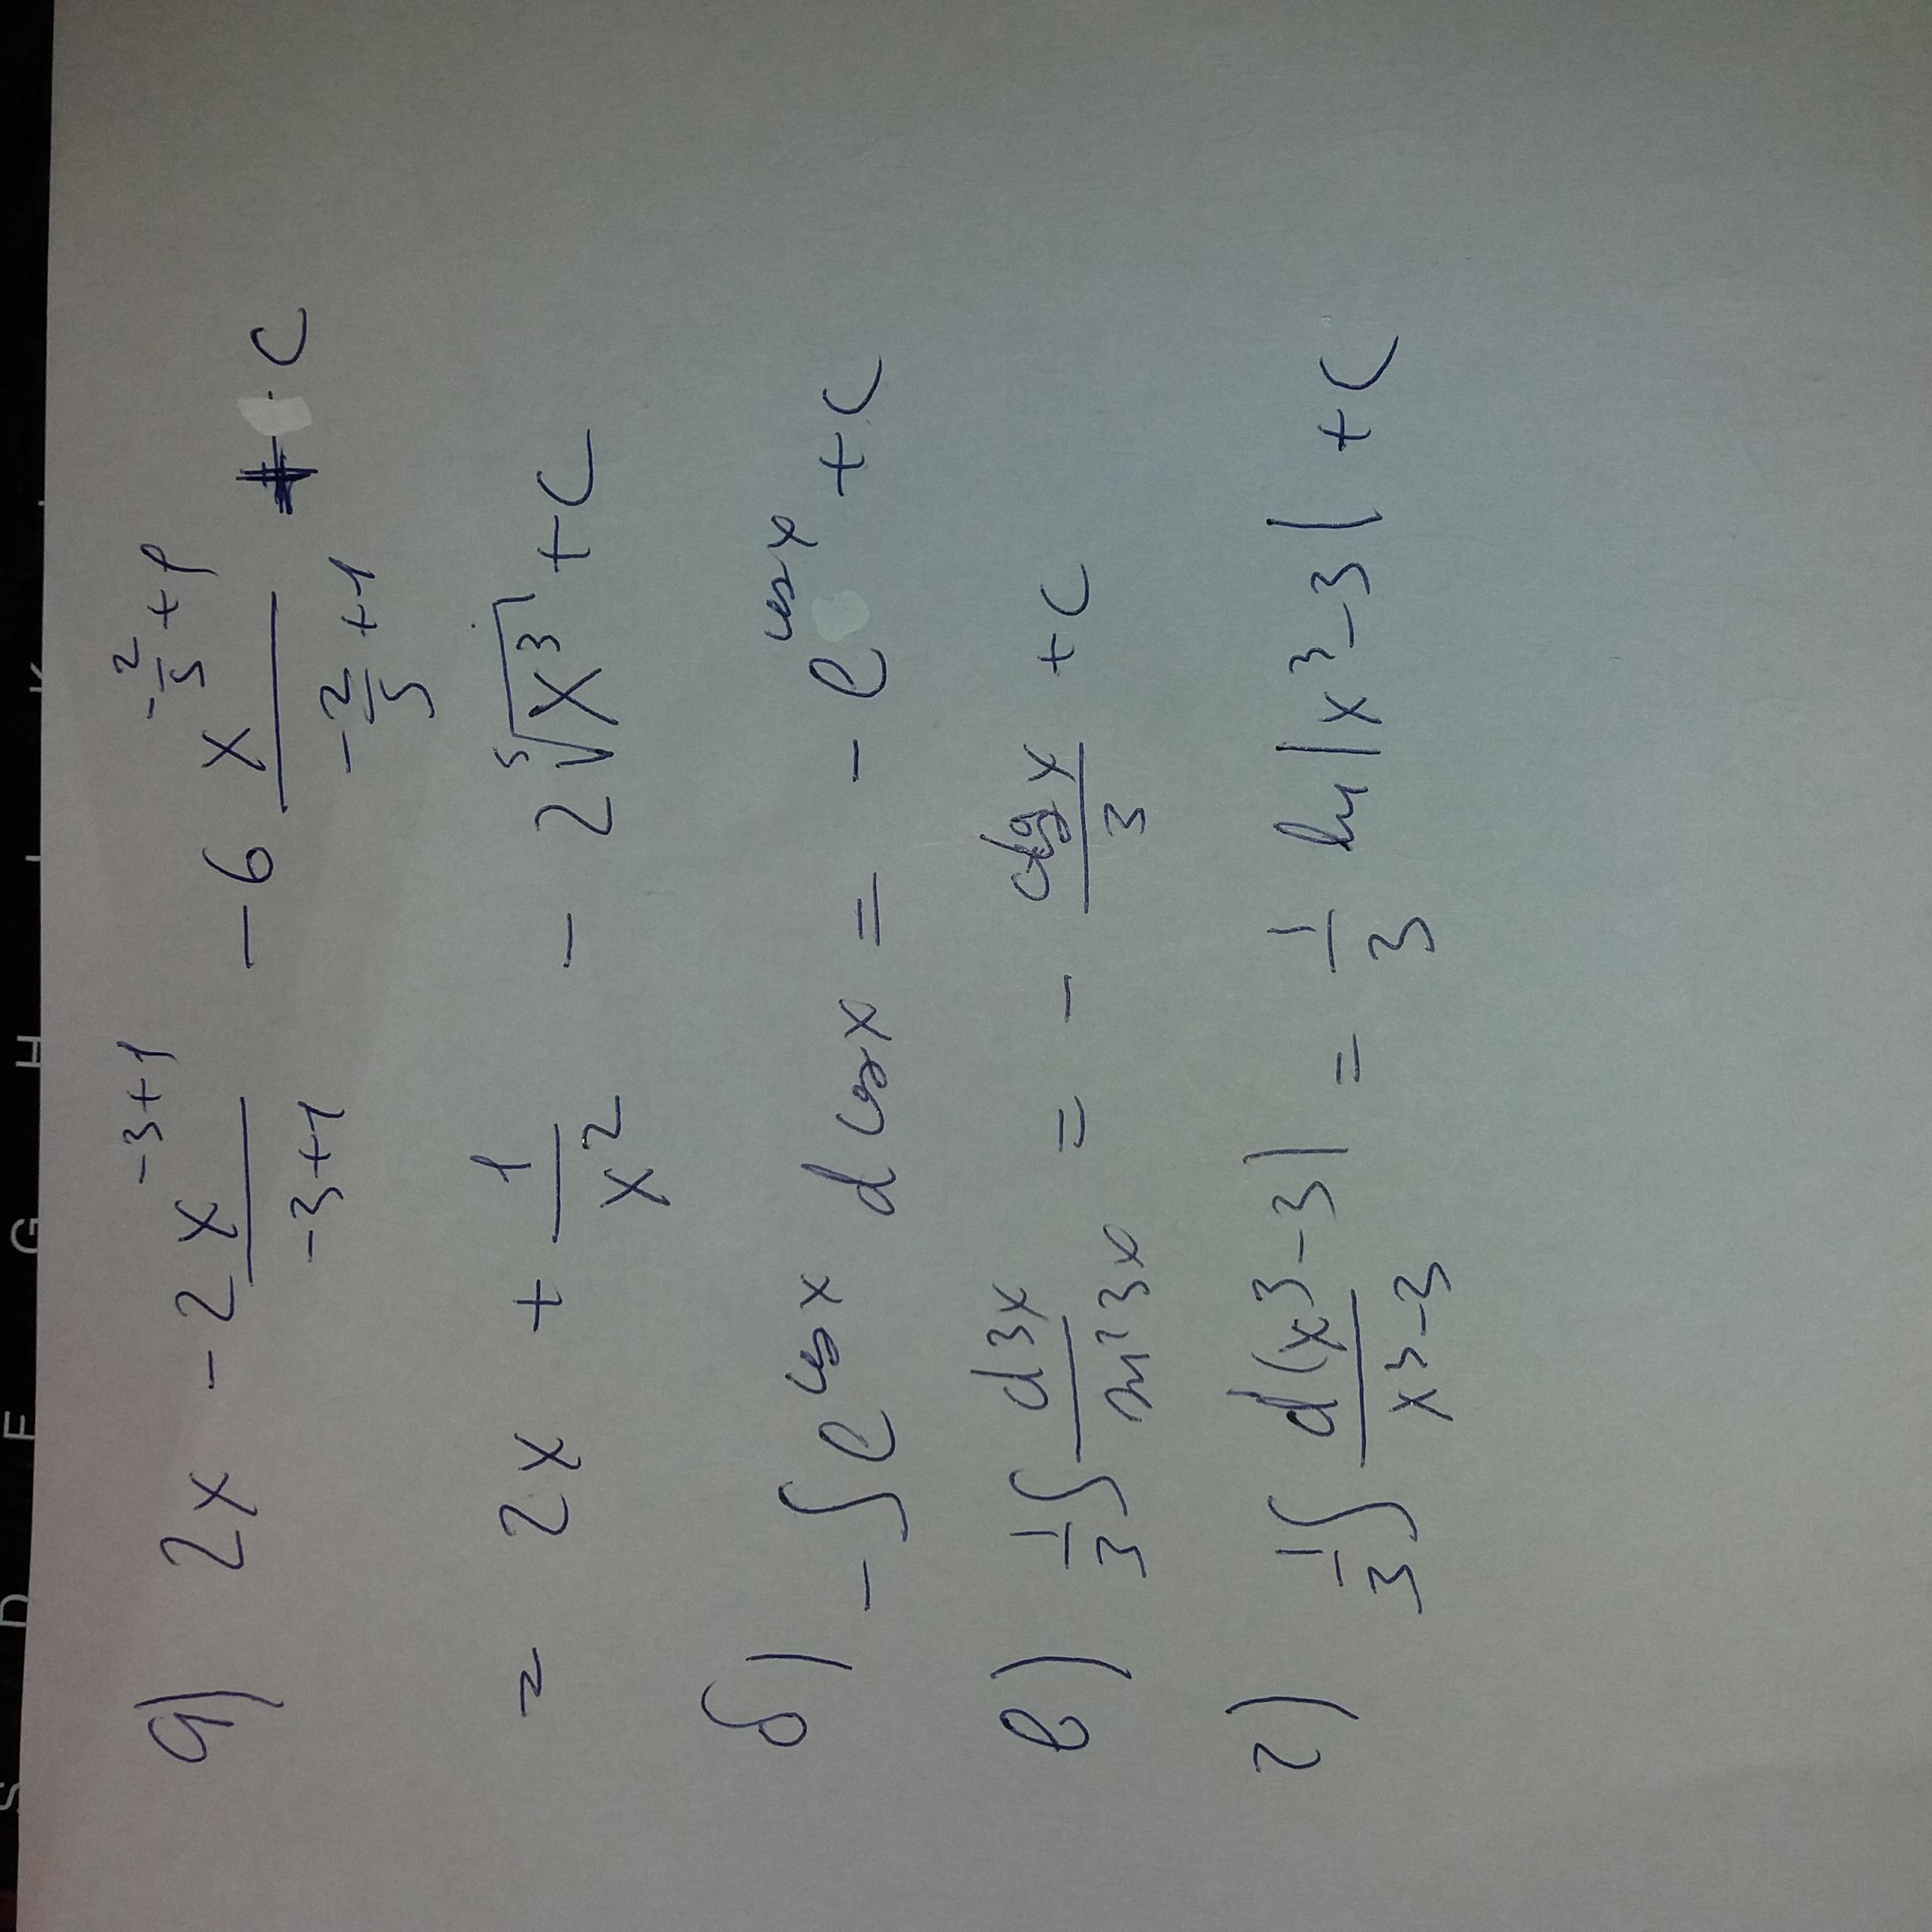 а) 2x - 2 x^{-3+1}/(-3+1) - 6 x^{-2/5+1}/(-2/5+1) + C
= 2x + 1/x^2 - 2 ⁵√(x^3) + C
б) -∫ e^{cos x} d cos x = - e^{cos x} + C
в) 1/3 ∫ d3x/sin^2 3x = - ctg x/3 + C
г) 1/3 ∫ d(x^3-3)/(x^3-3) = 1/3 ln|x^3-3| + C
S D F G H